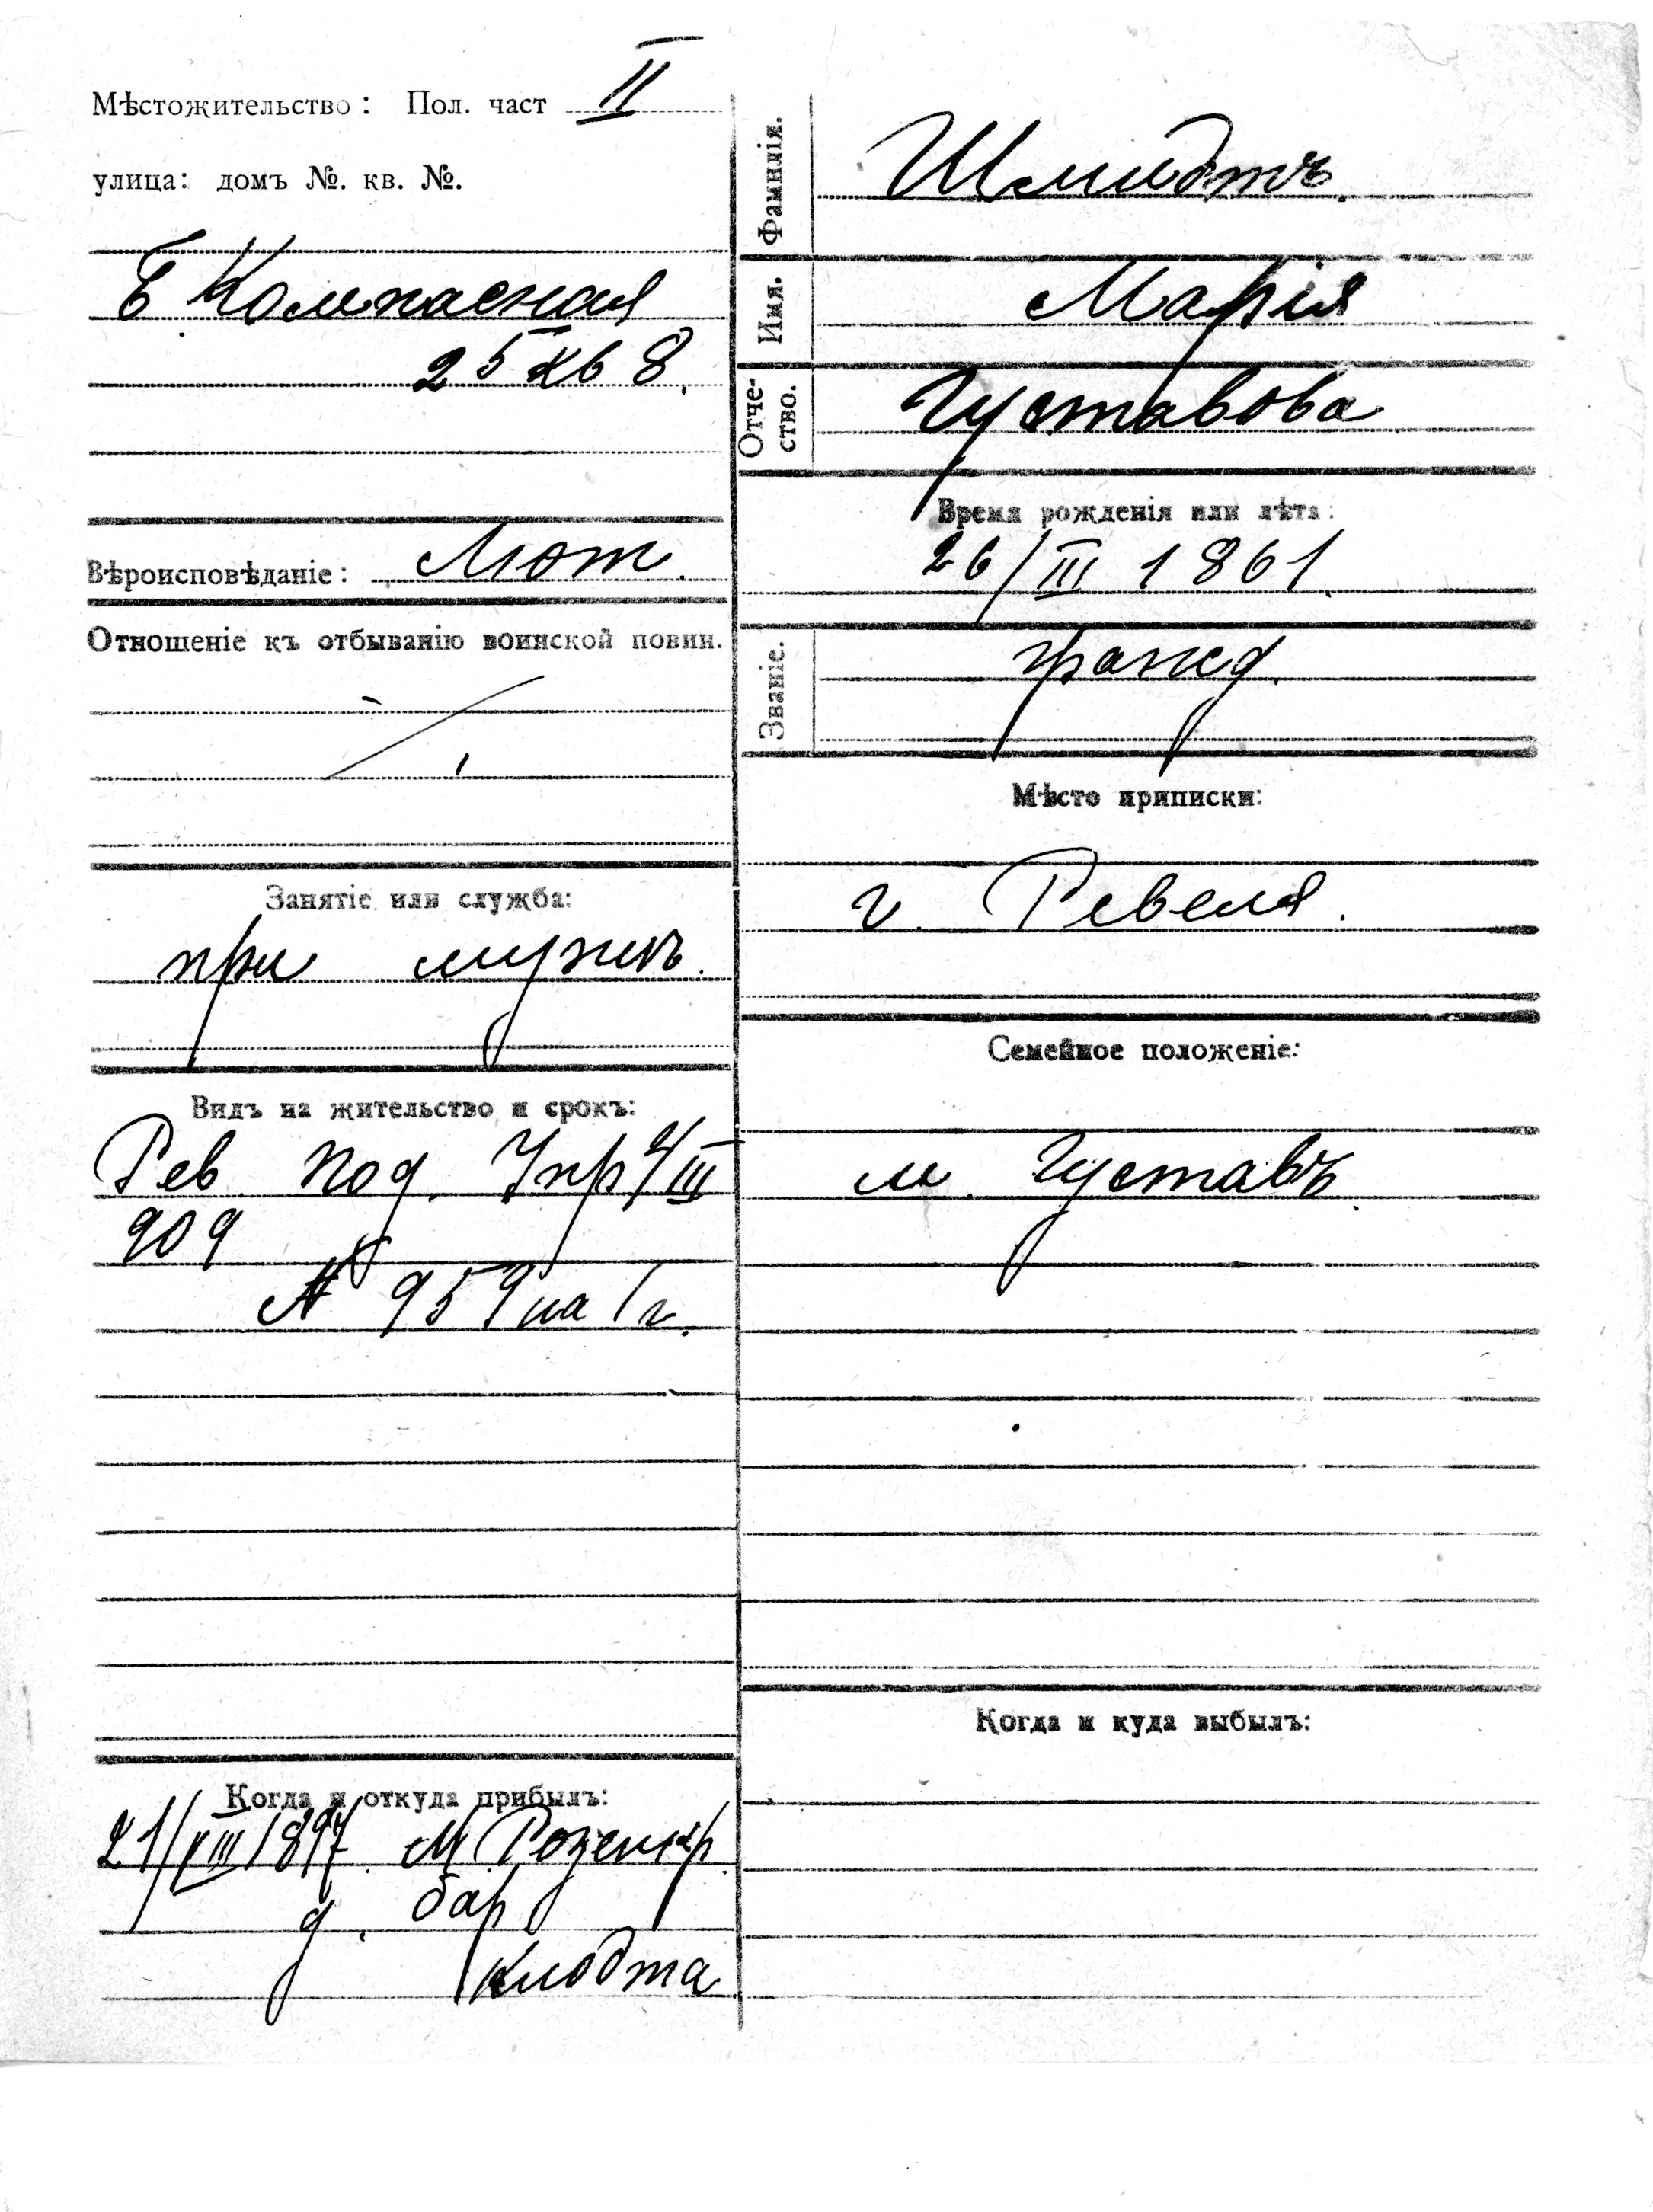 Мѣстожительство: Пол. част II
улица: домъ №. кв. №.
Б Компасная
25 кв 8.
Вѣроисповѣданіе: Лют.
Отношеніе къ отбыванію воинской повин.
Занятіе или служба:
при мужѣ.
Видъ на жительство и срокъ:
Рев. Под. Упр 4/III
909
№ 959 на 1 г.
Когда и откуда прибылъ:
21/VIII 1897. М. Розенкр.
д. бар
Клодта
Фамилія.
Шмидтъ.
Имя.
Марія
Отче-
ство.
Густавова
Время рожденія или лѣта:
26/III 1861.
Званіе.
гражд.
Мѣсто приписки:
г. Ревеля.
Семейное положеніе:
м. Густавъ.
Когда и куда выбылъ: